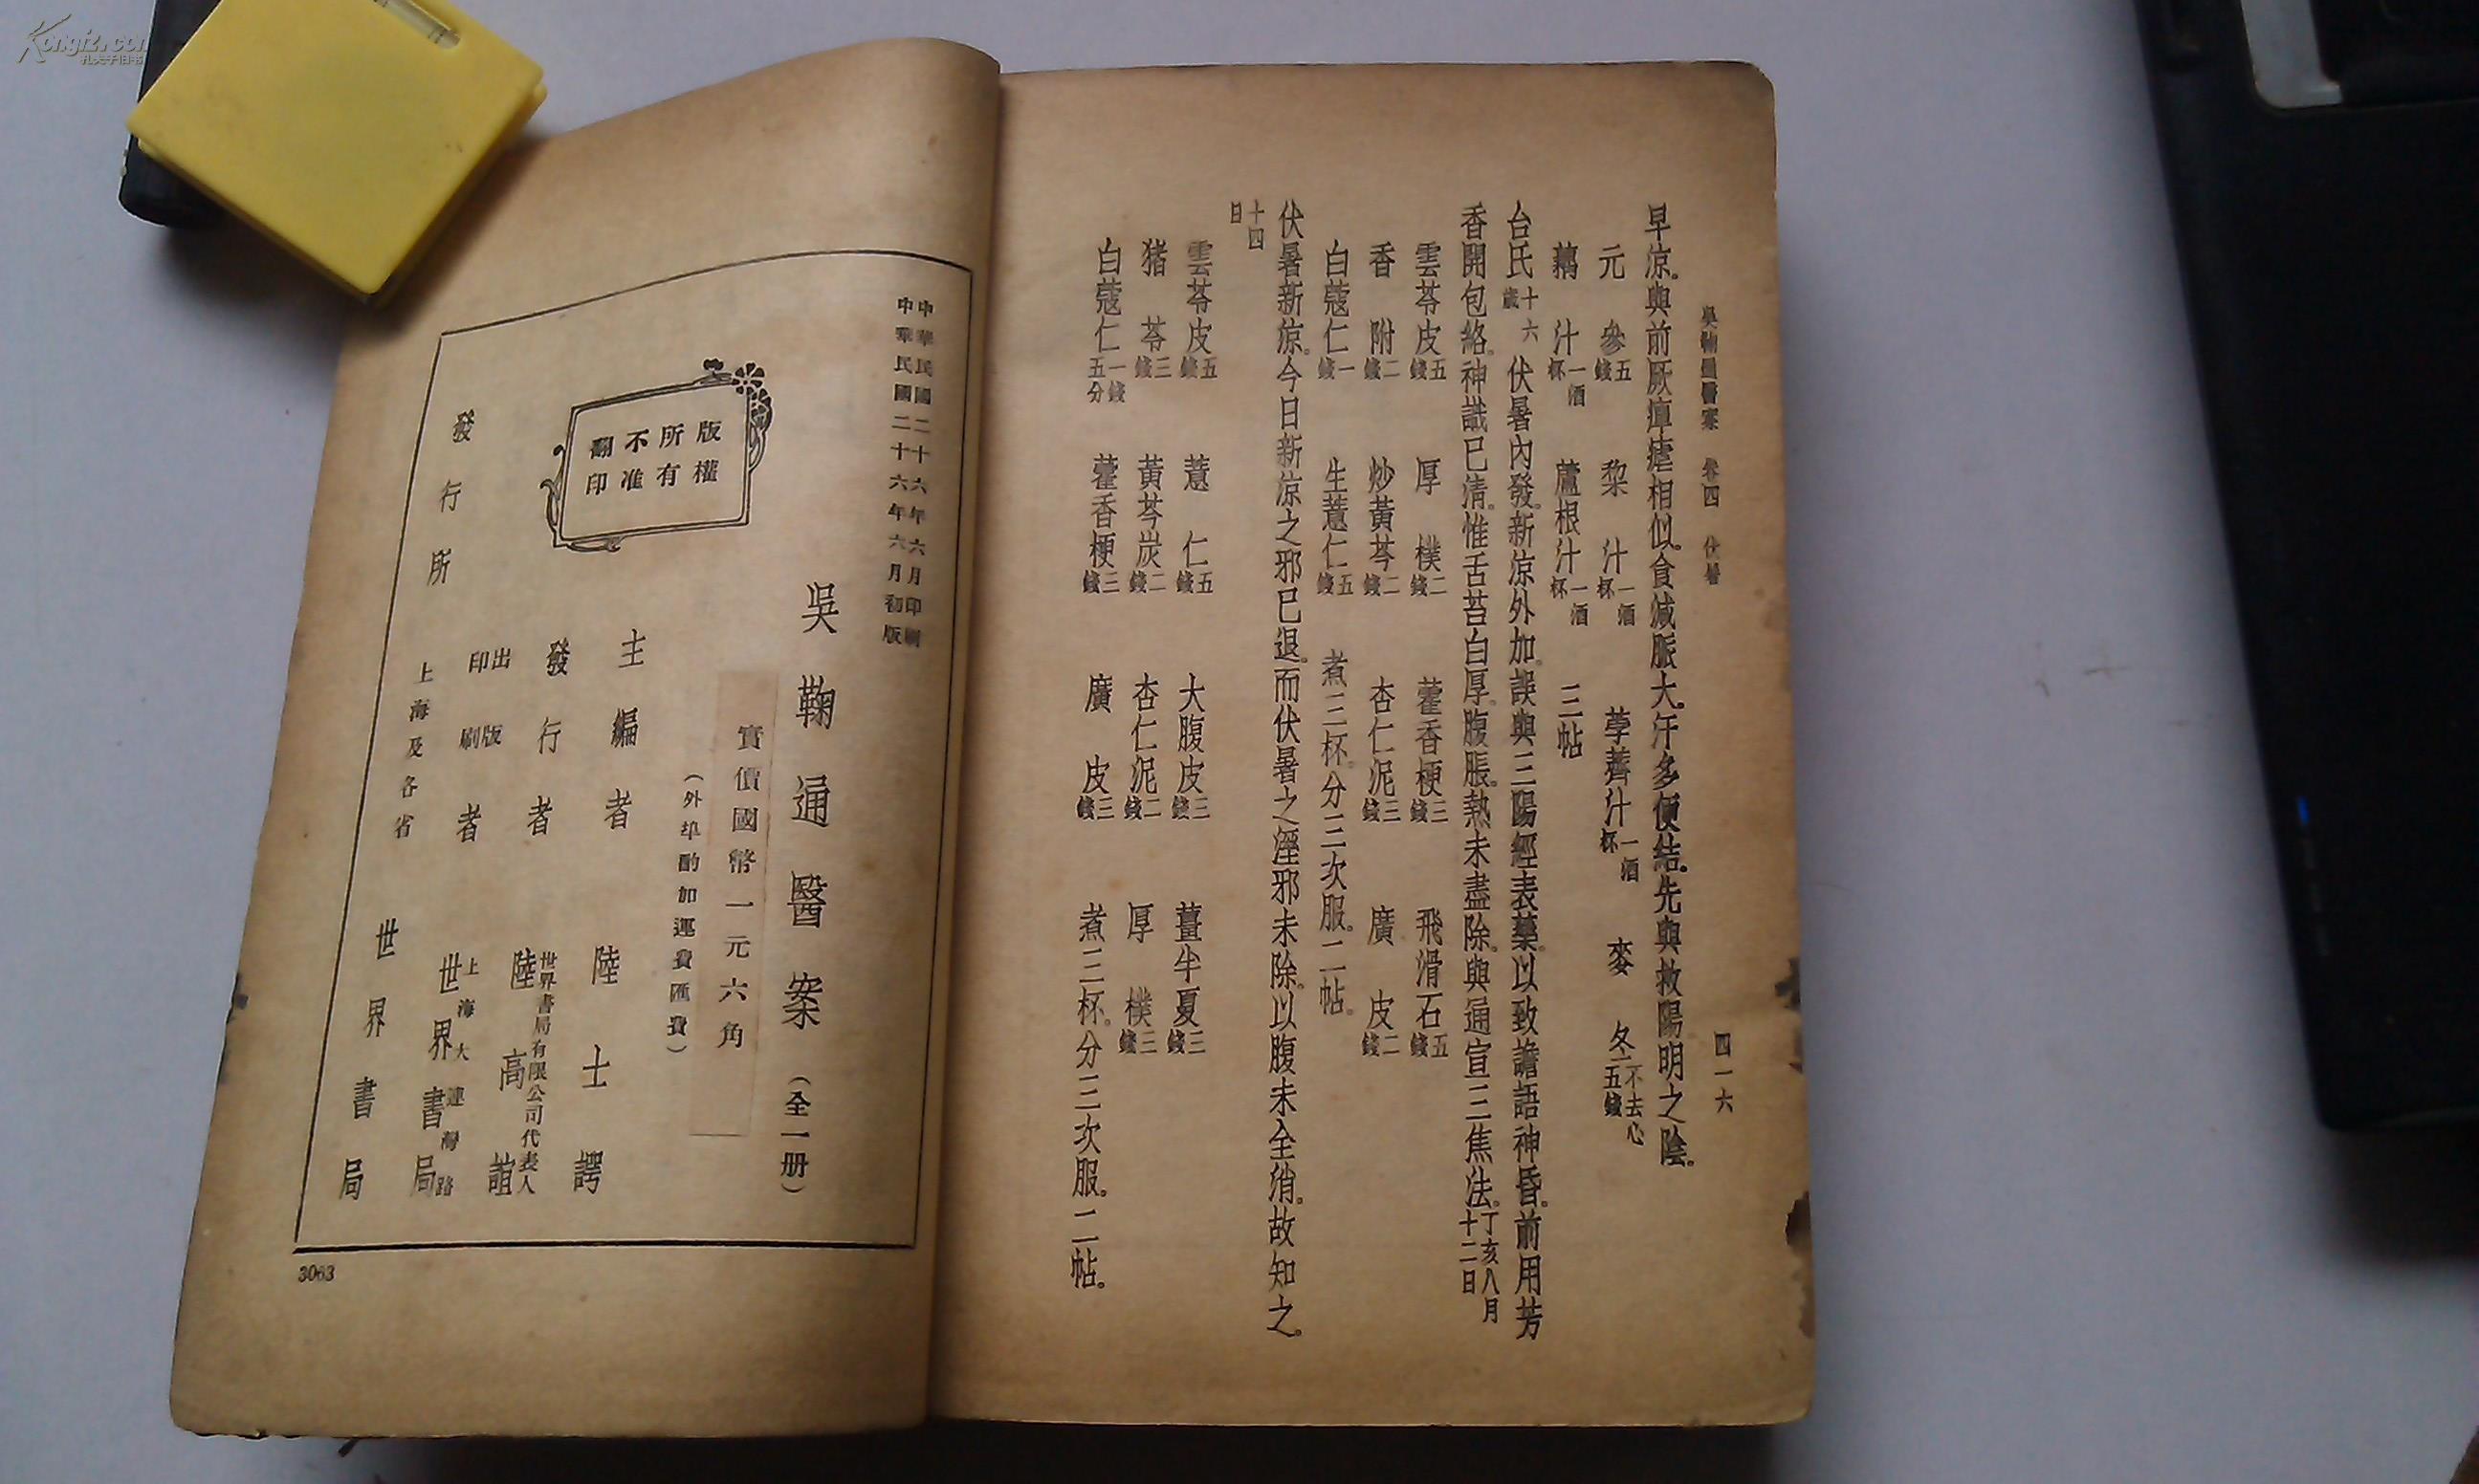 吳鞠通醫案 卷四 伏暑
四一六
早涼。與前厥瘅瘧相似。食減脈大。汗多便結。先與救陽明之陰。
元參五錢 梨汁一酒杯 荸薺汁一酒杯 麥冬不去心五錢
藕汁一酒杯 蘆根汁一酒杯 三帖
台氏十六歲 伏暑內發。新涼外加。誤與三陽經表藥。以致譫語神昏。前用芳
香開包絡。神識已清。惟舌苔白厚。腹脹。熱未盡除。與通宣三焦法。丁亥八月十二日
雲苓皮五錢 厚樸二錢 藿香梗三錢 飛滑石五錢
香附二錢 炒黃芩二錢 杏仁泥三錢 廣皮二錢
白蔻仁一錢 生薏仁五錢 煮三杯。分三次服。二帖。
伏暑新涼。今日新涼之邪已退。而伏暑之溼邪未除。以腹未全消。故知之。
十四日
雲苓皮五錢 薏仁五錢 大腹皮三錢 薑半夏三錢
猪苓三錢 黃芩炭二錢 杏仁泥二錢 厚樸三錢
白蔻仁一錢五分 藿香梗三錢 廣皮三錢 煮三杯。分三次服。二帖。
中華民國二十六年六月印刷
中華民國二十六年六月初版
吳鞠通醫案（全一册）
實價國幣一元六角
（外埠酌加運費匯費）
版權
所有
不准
翻印
主編者 陸士諤
發行者 世界書局有限公司代表人 陸高誼
出版印刷者 上海大連灣路 世界書局
發行所 上海及各省 世界書局
3063
Kongfz.com
孔夫子旧书